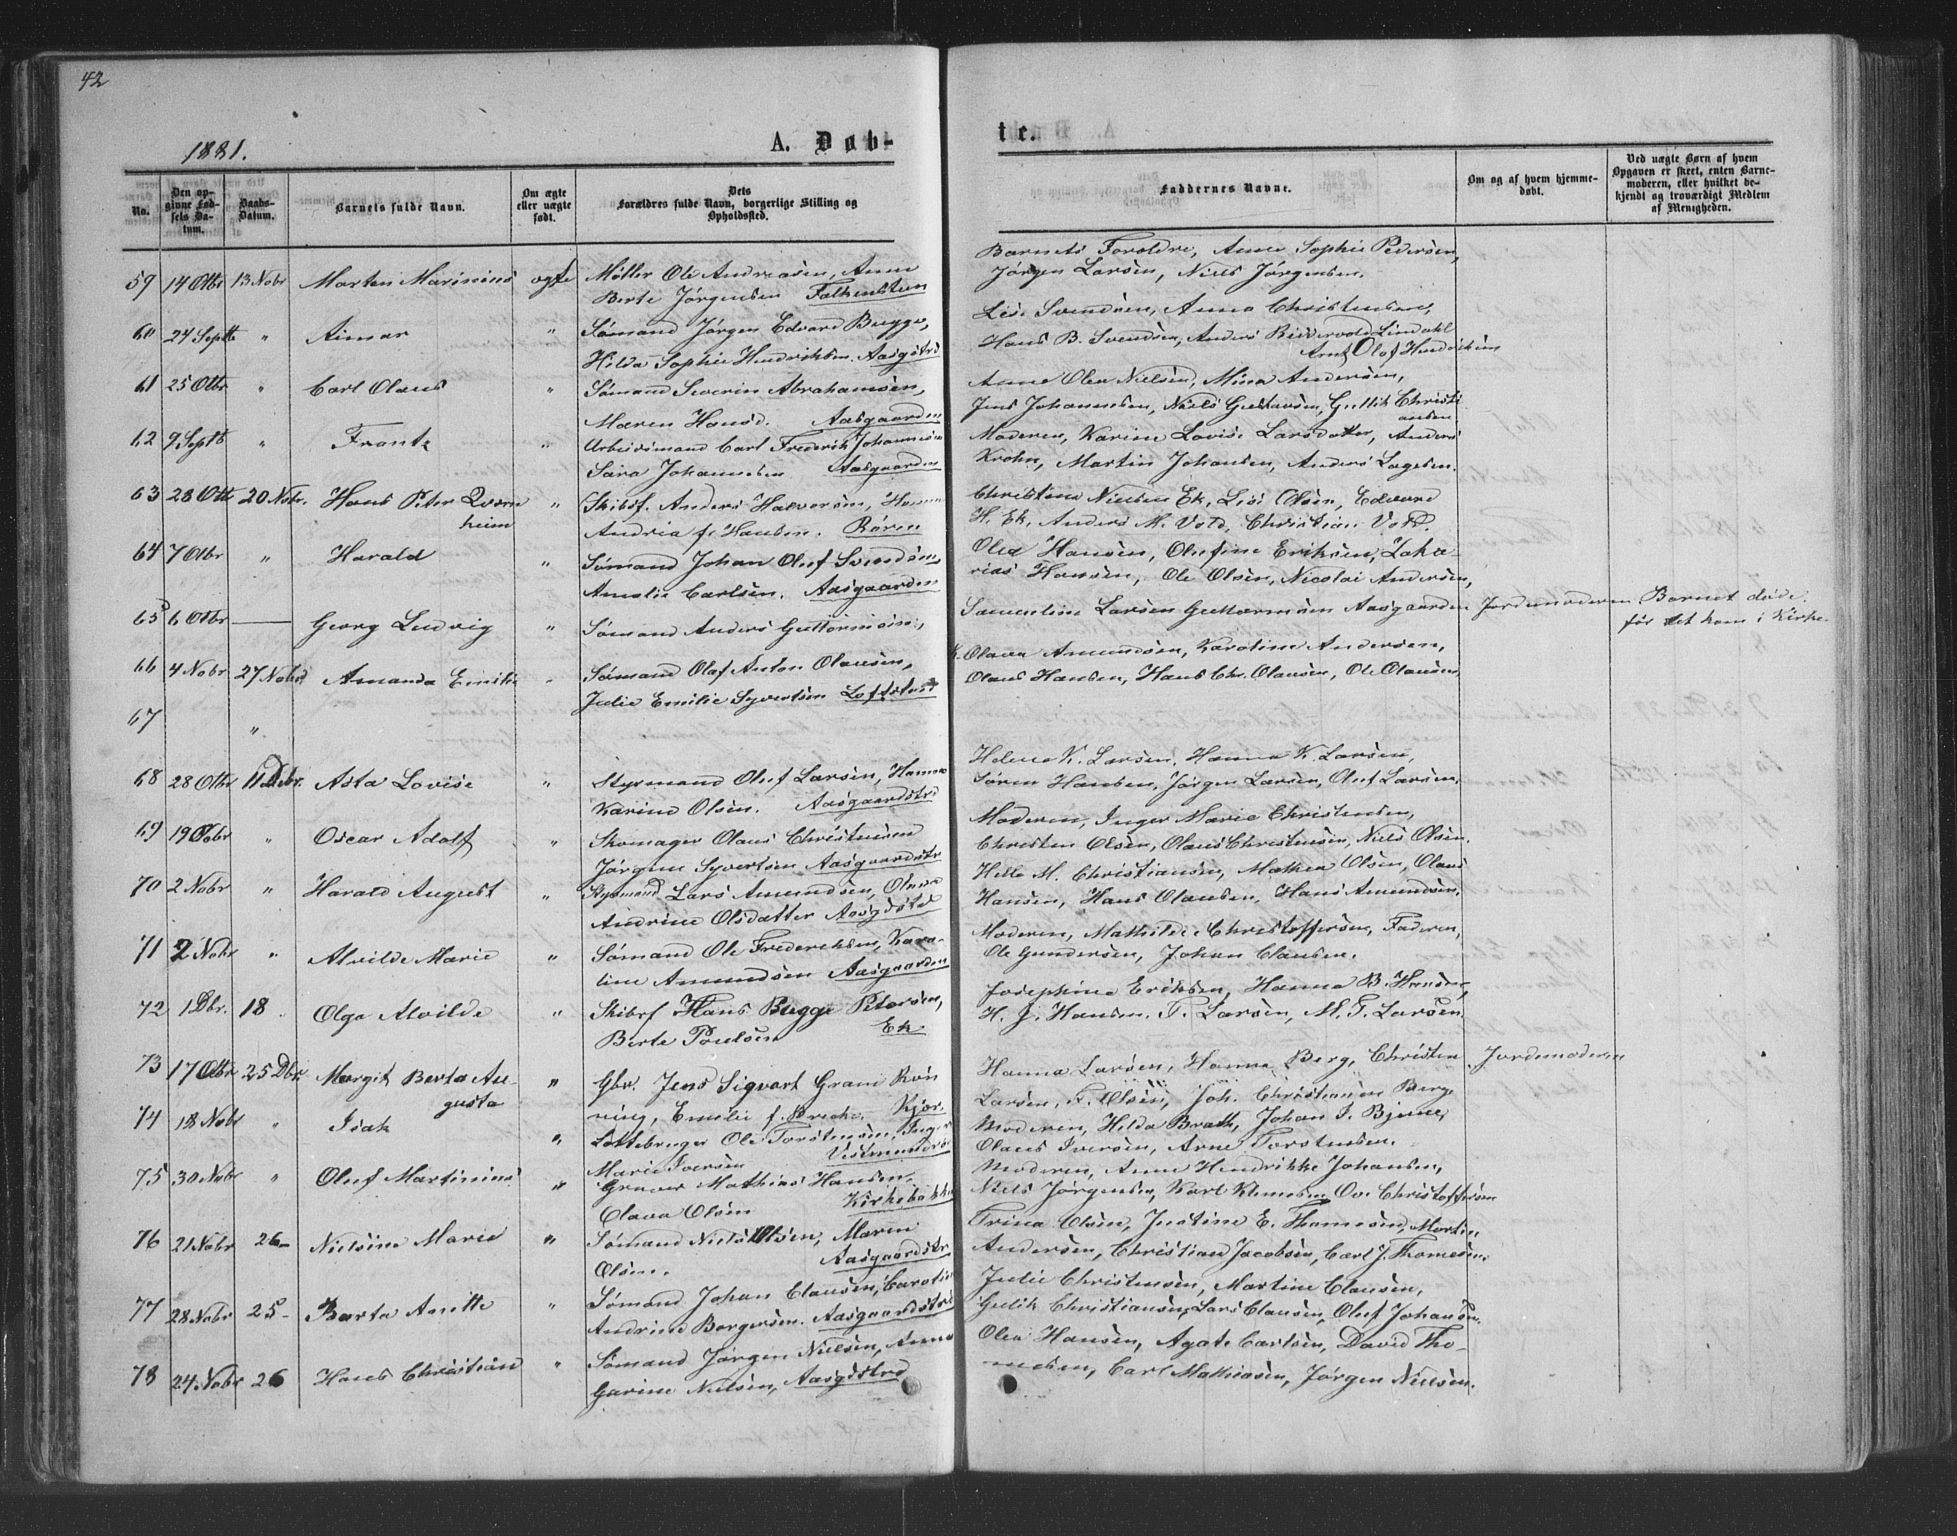 42
1881.
A. Døb-
te.
No.
Den opgivne Fødsels Datum.
Daabs-Datum.
Barnets fulde Navn.
Om ægte eller uægte født.
Dets Forældres fulde Navn, borgerlige Stilling og Opholdssted.
Faddernes Navne.
Om og af hvem hjemmedøbt.
Ved uægte Børn af hvem Opgaven er skeet, enten Barnemoderen, eller hvilket bekjendt og troværdigt Medlem af Menigheden.
59 14 Otbr 13 Nobr Marten Marinius ægte Møller Ole Andreasen, Anne
Berte Jørgensen Falkensten
Barnets Forældre, Anne Sophie Pedersen,
Jørgen Larsen, Niels Jørgensen.
60 24 Septb " Aimar " Sømand Jørgen Edvard Bugge,
Hilda Sophie Hendriksen. Aasgstrd
Lise Svendsen, Anna Christensen,
Hans B. Svendsen, Anders Biddervold Lindahl
Arnt Olof Hendriksen
61 25 Otbr " Carl Olaus " Sømand Severin Abrahamsen,
Maren Hansd. Aasgaarden
Anne Olea Nielsen, Mina Andersen,
Jens Johannsen, Niels Gustavsen, Gullik Christi
ansen
62 9 Septb " Frantz " Arbeidsmand Carl Frederik Johannsen
Sara Johannesen Aasgaarden
Moderen, Karine Lovise Larsdatter, Anders
Krohn, Martin Johansen, Anders Lagesen.
63 28 Otbr 20 Nobr. Hans Peter Qvern
heim " Skibsf. Anders Halvorsen, Hanna
Andrea f. Hansen. Røren
Christine Nielsen Ek, Lise Olsen, Edvard
H. Ek, Anders M. Vold, Christian Vold.
64 7 Otbr " Harald " Sømand Johan Oluf Svendsen
Amalie Carlsen. Aasgaarden
Olea Hansen, Olufine Eriksen, Zaka-
rias Hansen, Ole Olsen, Nicolai Andersen,
65 6 Otbr — Georg Ludvig " Sømand Anders Guttormsen,
Samueline Larsen Guttormsen Aasgaarden Jordemoderen Barnet døde
før det kom i Kirke
66 4 Nobr 27 Nobr Amanda Emilie " Sømand Olaf Anton Olausen,
Julie Emilie Syvertsen Loftstøst
Olava Amundsen, Karoline Andersen,
Olaus Hansen, Hans Chr. Olausen, Ole Olausen
67 "
68 28 Otbr 11 Debr. Asta Lovise " Styrmand Oluf Larsen, Hanna
Karine Olsen. Aasgaardstrd
Helene K. Larsen, Hanna K. Larsen,
Søren Hansen, Jørgen Larsen, Oluf Larsen,
69 19 Nobr " Oscar Adolf " Skomager Olaus Christensen
Jørgine Syvertsen Aasgaardstr
Moderen, Inger Marie Christensen,
Christen Olsen, Olaus Christensen, Niels Olsen
70 2 Nobr " Harald August " Styrmand Lars Amundsen, Olava
Andrine Olsdatter Aasgdstd
Helle M. Christiansen, Mathea Olsen, Olaus
Hansen, Hans Olausen, Hans Amundsen.
71 2 Nobr " Alvilde Marie " Sømand Ole Frederiksen, Karo-
line Amundsen Aasgaarden
Moderen, Mathilde Christoffersen, Faderen,
Ole Gundersen, Johan Clausen.
72 1 Dbr. 18 Olga Alvilde " Skibsf Hans Bugge Petersen,
Berte Poulsen Ek
Josephine Eriksen, Hanna B. Hansen,
H. J. Hansen, F. Larsen, M. F. Larsen
73 17 Otbr 25 Dbr. Margit Berta Au-
gusta " Gbr. Jens Sigvart Gram Røn
ning, Emilie f. Brecke. Kjør.
Hanna Larsen, Hanna Berg, Christen Jordemoderen
Larsen, F. Olsen, Joh. Christiansen Berg
74 18 Nobr " Isak " Lottebruger Ole Torstensen, Inger
Marie Iversen Vestmunderød
Moderen, Hilda Brath, Johan I. Bjerne,
Olaus Iversen, Arne Torstensen.
75 30 Nobr " Oluf Martinius " Graver Mathias Hansen,
Olava Olsen Kirkebakken
Moderen, Anne Hendrikke Johansen,
Niels Jørgensen, Karl Klemetsen, Ove Christoffersen
76 21 Nobr 26 - Nielsine Marie " Sømand Niels Olsen, Maren
Olsen. Aasgaardstr
Trina Olsen, Justine E. Thomesen, Martin
Andersen, Christian Jacobsen, Carl J. Thomesen.
77 28 Nobr 25 - Berta Anitte " Sømand Johan Clausen, Caroline
Andrine Borgersen. Aasgaardstrd
Julie Christensen, Martine Clausen,
Gulik Christiansen, Lars Clausen, Oluf Johansen.
78 24 Nobr 26 Hans Christian " Sømand Jørgen Nielsen, Anne
Garine Nielsen, Aasgdstrd
Olea Hansen, Agate Carlsen, David Tho-
mesen, Carl Mathiasen, Jørgen Nielsen.